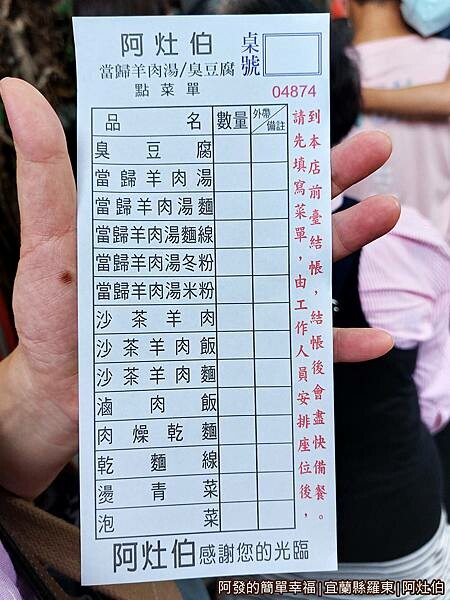 阿灶伯
桌號
當歸羊肉湯/臭豆腐
點菜單
04874
品名 數量 外帶/備註
臭豆腐
當歸羊肉湯
當歸羊肉湯麵
當歸羊肉湯麵線
當歸羊肉湯冬粉
當歸羊肉湯米粉
沙茶羊肉
沙茶羊肉飯
沙茶羊肉麵
滷肉飯
肉燥乾麵
乾麵線
燙青菜
泡菜
請先填寫菜單，由工作人員安排座位後，
到本店前臺結帳，結帳後會盡快備餐。
阿灶伯感謝您的光臨
阿發的簡單幸福|宜蘭縣羅東|阿灶伯